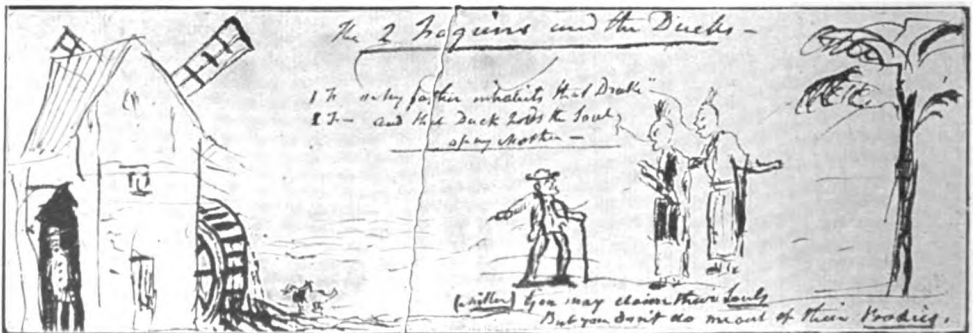 The 2 Faquins and the Ducks -
1 F. my father inhabits that Drake"
2 F - and that Duck holds the Soul
of my Mother -
(miller) You may claim their Souls
But you don't do me out of their Bodies.